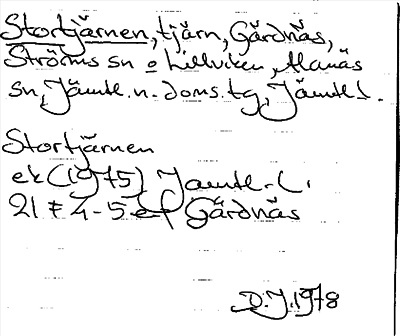 Stortjärnen, tjärn, Gärdnäs,
Ströms sn o Lillviken, Alanäs
sn, Jämtl. n. doms. tg, Jämtl l.
Stortjärnen
ek (1975) Jämtl. L.
21 F 4-5 e f Gärdnäs
D.J. 1978